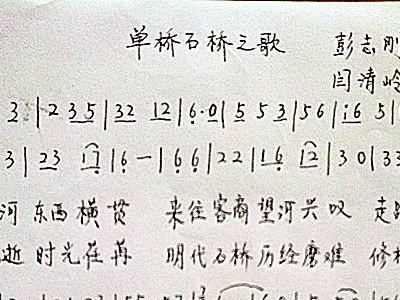 单桥石桥之歌 彭志刚
闫清岭
3 | 2 3 5 | 32 12 | 6·0 | 5 5 3 | 56 | i6 5 |
3 | 23 17 | 6 — | 6 6 | 22 | 16 12 | 30 | 33
河 东西横贯 来往客商望河兴叹 走
逝 时光荏苒 明代石桥历经磨难 修